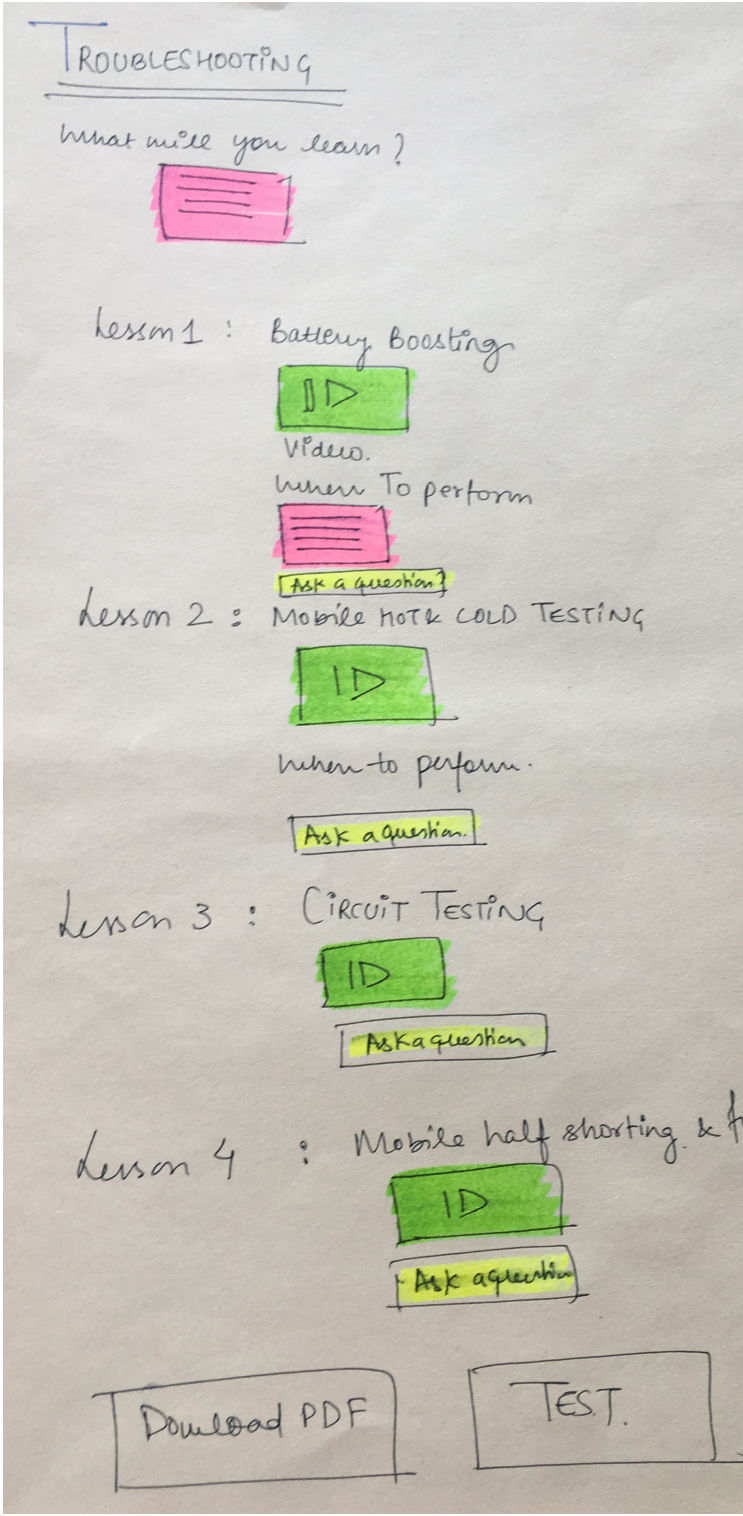 TROUBLESHOOTING
What will you learn?
Lesson 1 : Battery Boosting
Video.
When To perform
Ask a question?
Lesson 2 : Mobile HOT & COLD TESTING
When to perform.
Ask a question.
Lesson 3 : CIRCUIT TESTING
Ask a question
Lesson 4 : Mobile half shorting. &
Ask a question
Download PDF
TEST.